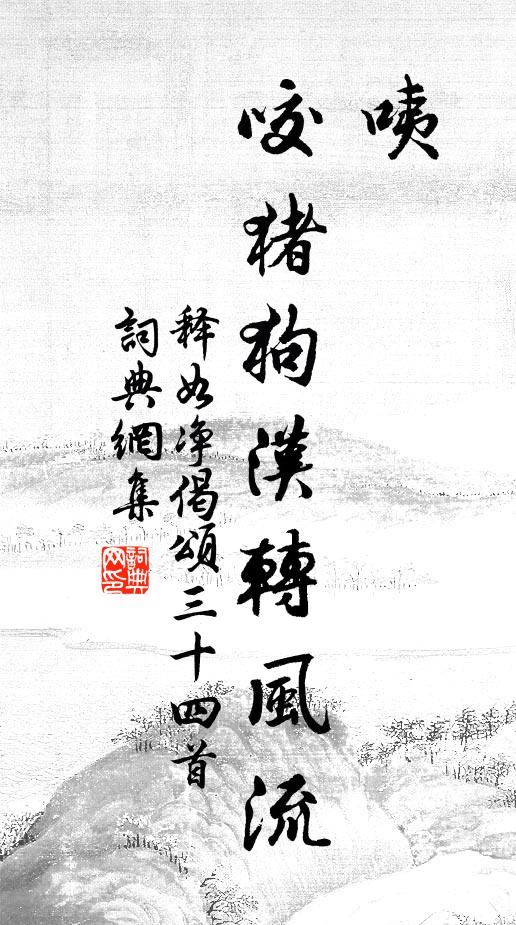 咦
咬猪狗漢轉風流
释如净偈頌三十四首
詞典網集
詞典网印